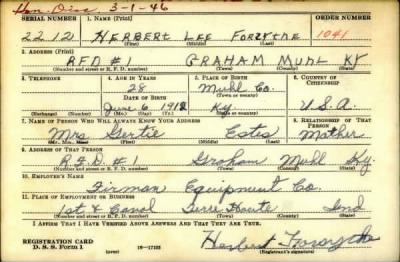 Hon. Disc. 3-1-46
SERIAL NUMBER 1. NAME (Print) ORDER NUMBER
2212 HERBERT LEE FORSYTHE 1041
(First) (Middle) (Last)
2. ADDRESS (Print)
RFD #1 GRAHAM MUHL KY
(Number and street or R. F. D. number) (Town) (County) (State)
3. TELEPHONE 4. AGE IN YEARS 5. PLACE OF BIRTH 6. COUNTRY OF CITIZENSHIP
28 Muhl Co.
DATE OF BIRTH (Town or county)
June 6 1912 Ky U.S.A.
(Exchange) (Number) (Mo.) (Day) (Yr.) (State or country)
7. NAME OF PERSON WHO WILL ALWAYS KNOW YOUR ADDRESS 8. RELATIONSHIP OF THAT PERSON
Mrs Gertie Estes Mother
(Mr., Mrs., Miss) (First) (Middle) (Last)
9. ADDRESS OF THAT PERSON
R.F.D. #1 Graham Muhl Ky.
(Number and street or R. F. D. number) (Town) (County) (State)
10. EMPLOYER'S NAME
Firman Equipment Co.
11. PLACE OF EMPLOYMENT OR BUSINESS
1st & Canal Terre Haute Ind
(Number and street or R. F. D. number) (Town) (County) (State)
I AFFIRM THAT I HAVE VERIFIED ABOVE ANSWERS AND THAT THEY ARE TRUE.
REGISTRATION CARD
D. S. S. Form 1 16—17105 Herbert Forsythe
(Registrant's signature)